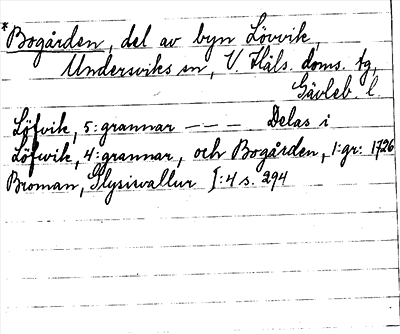 *Bogården, del av byn Lövvik,
Undersviks sn, V. Häls. doms. tg,
Gävleb. l.
Löfvik, 5: grannar – – – Delas i
Löfwik, 4: grannar, och Bogården, 1: gr: 1726
Broman, Glysisvallur I:4 s. 294